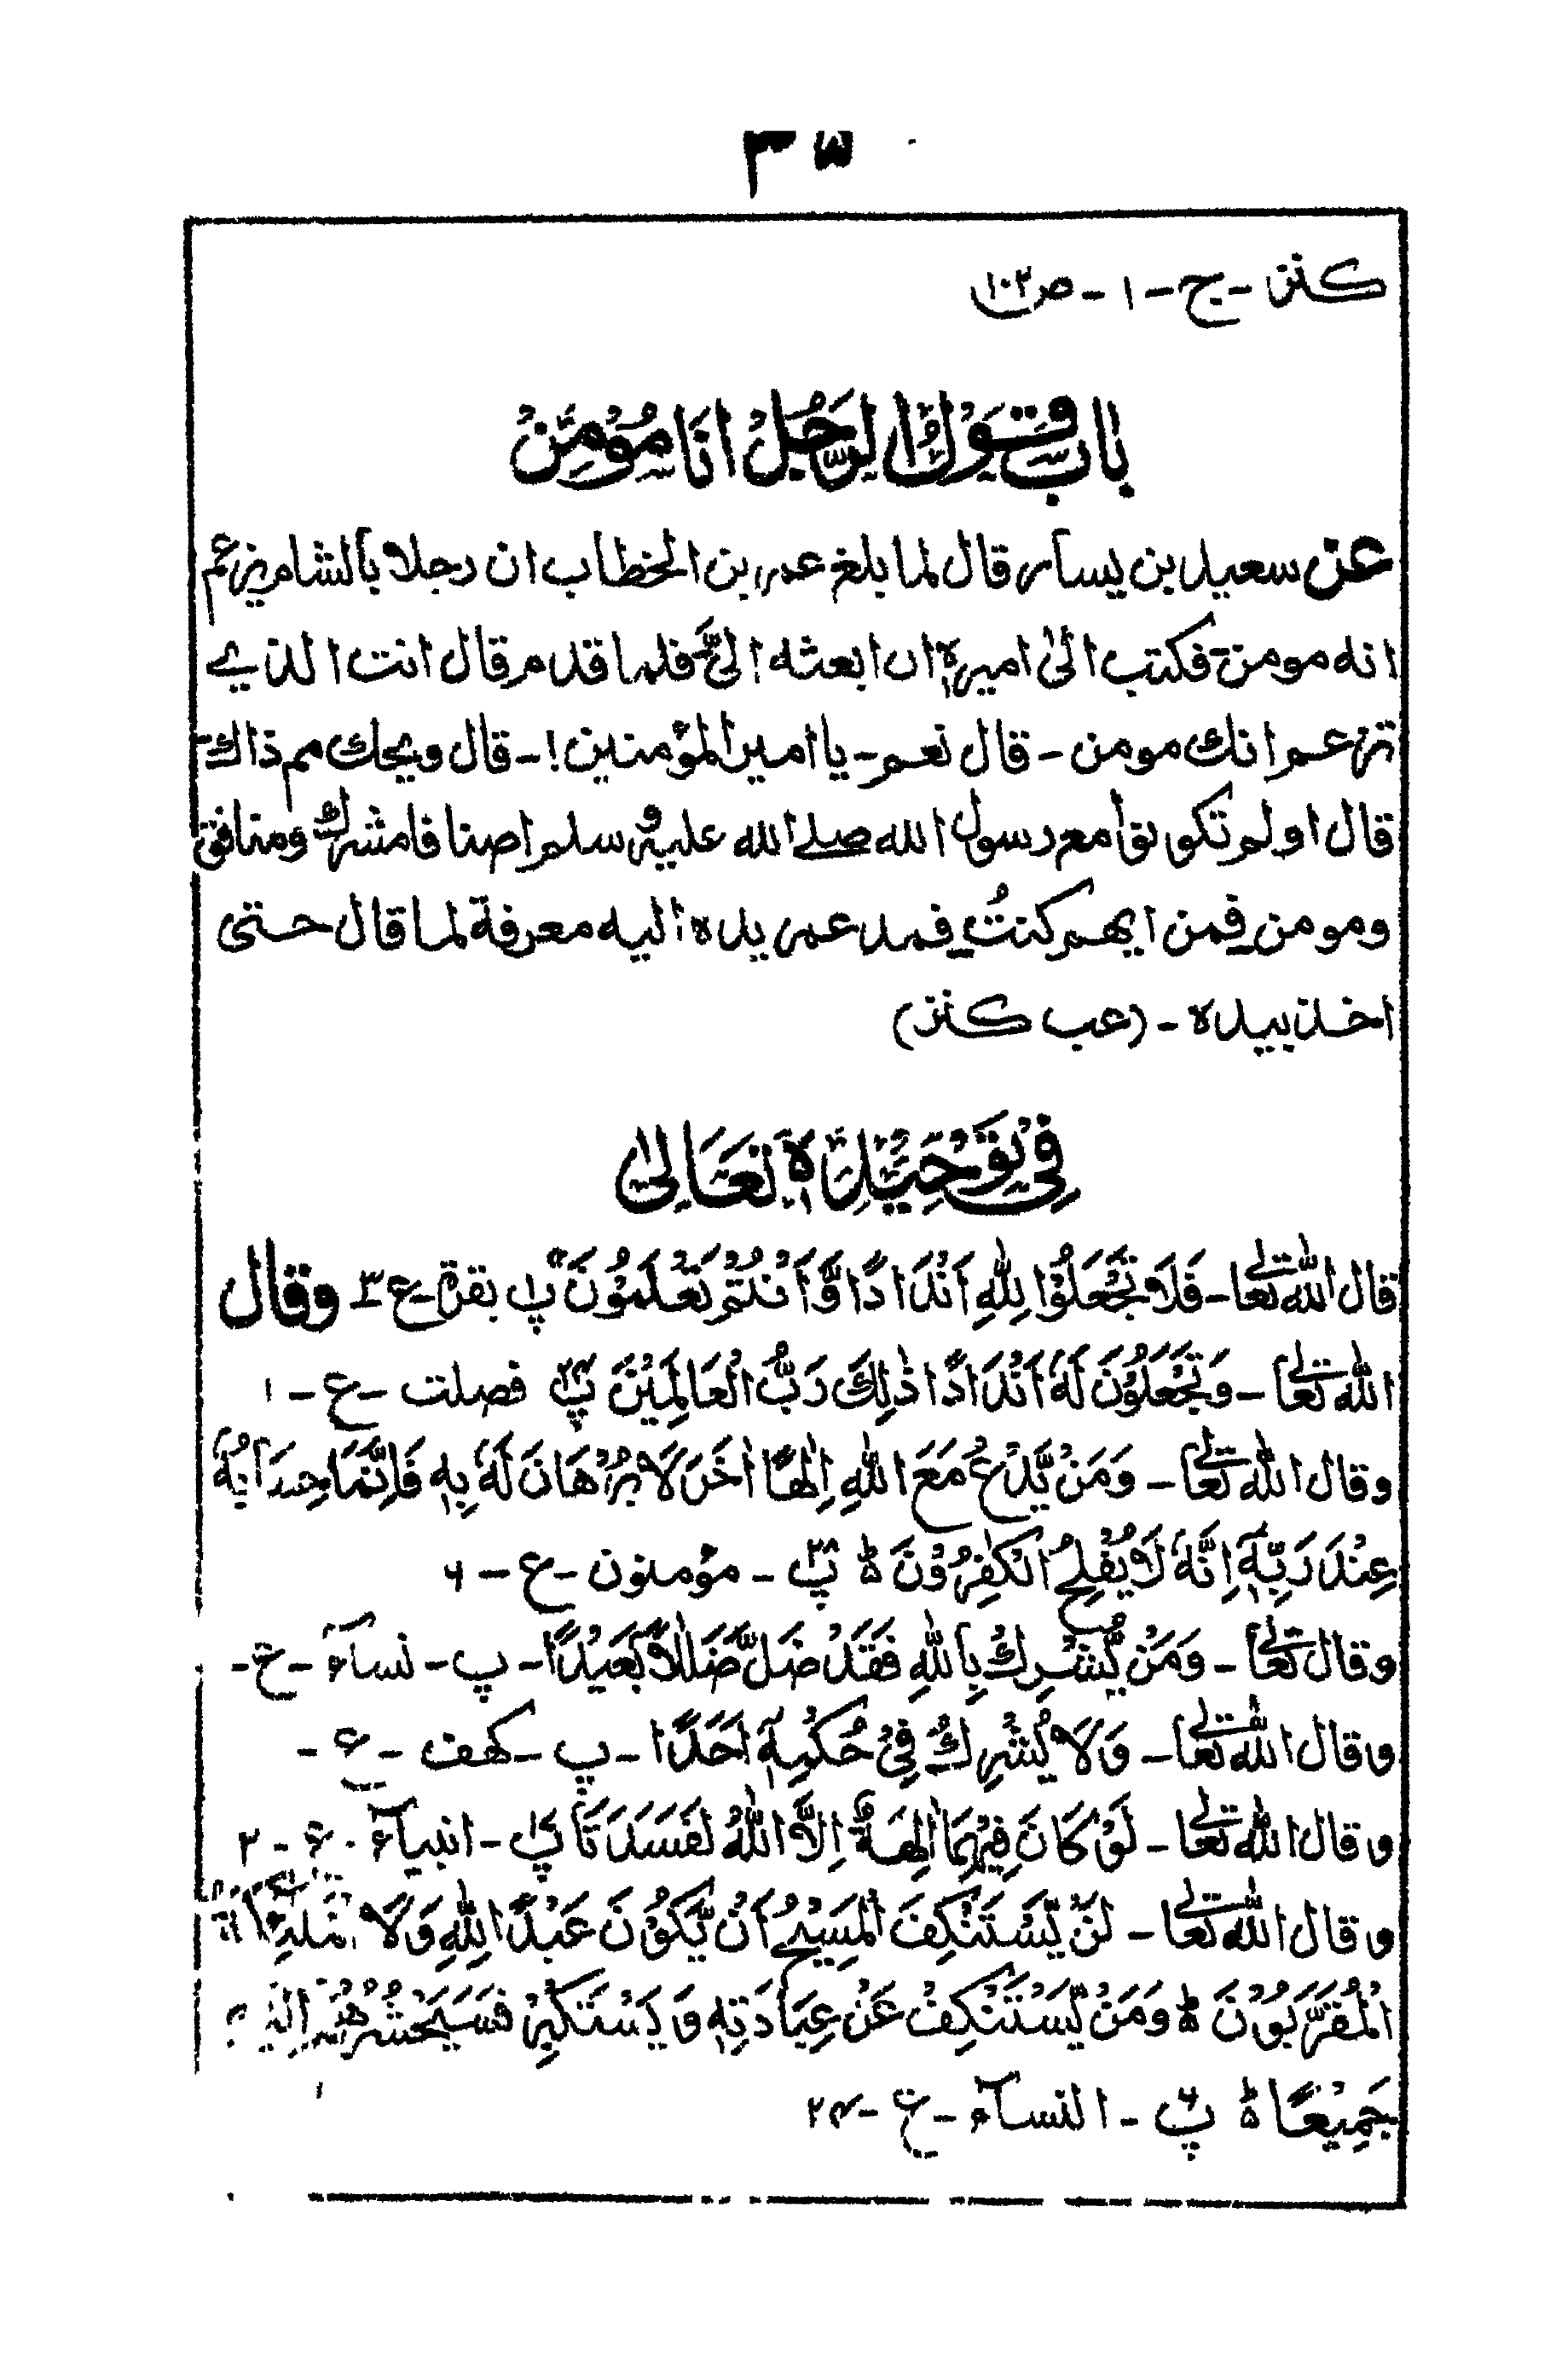 ۳۵
كنز - ج - ۱ - ص ۱۰۳
بَابُ قَوْلِ الرَّجُلِ اَنَا مُؤْمِنٌ
عن سعيد بن يسار قال لما بلغ عمر بن الخطاب ان رجلا بالشام يزعم
انه مومن فكتب الىٰ اميره ان ابعثه الىَّ فلما قدم قال انت الذي
تزعم انك مومن - قال نعم - يا امير المؤمنين! - قال ويحك مم ذاك
قال اولم تكونوا مع رسول الله صلے الله عليه وسلم اصنافا مشرك ومنافق
ومومن فمن ايهم كنتُ فمد عمر يده اليه معرفة لما قال حتى
اخذ بيده - (عب كنز)
فِيْ تَوْحِيْدِهٖ تَعَالىٰ
قال الله تعالى - فَلَا تَجْعَلُوْا لِلّٰهِ اَنْدَادًا وَّاَنْتُمْ تَعْلَمُوْنَ پ۱ بقرة ع ۳ وقال
الله تعالى - وَتَجْعَلُوْنَ لَهٗ اَنْدَادًا ذٰلِكَ رَبُّ الْعَالَمِيْنَ پ۲۴ فصلت - ع - ۱
وقال الله تعالى - وَمَنْ يَّدْعُ مَعَ اللهِ اِلٰهًا اٰخَرَ لَا بُرْهَانَ لَهٗ بِهٖ فَاِنَّمَا حِسَابُهٗ
عِنْدَ رَبِّهٖ اِنَّهٗ لَا يُفْلِحُ الْكٰفِرُوْنَ ط پ۱۸ - مؤمنون - ع - ۶
وقال تعالى - وَمَنْ يُّشْرِكْ بِاللهِ فَقَدْ ضَلَّ ضَلَالًا بَعِيْدًا - پ - نسآء - ع -
وقال الله تعالى - وَلَا يُشْرِكُ فِيْ حُكْمِهٖ اَحَدًا - پ - كهف - ع -
وقال الله تعالى - لَوْ كَانَ فِيْهِمَا اٰلِهَةٌ اِلَّا اللهُ لَفَسَدَتَا پ۱۷ - انبيآء - ع - ۲
وقال الله تعالى - لَنْ يَّسْتَنْكِفَ الْمَسِيْحُ اَنْ يَّكُوْنَ عَبْدًا لِّلّٰهِ وَلَا الْمَلٰٓئِكَةُ
الْمُقَرَّبُوْنَ ط وَمَنْ يَّسْتَنْكِفْ عَنْ عِبَادَتِهٖ وَيَسْتَكْبِرْ فَسَيَحْشُرُهُمْ اِلَيْهِ
جَمِيْعًا ط پ۶ - النسآء - ع - ۲۴